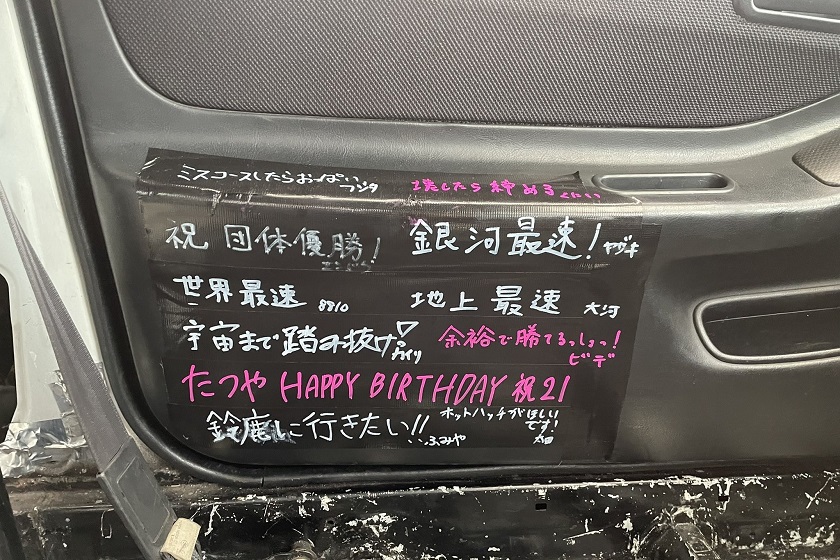 ミスコースしたらおっぱい フジタ
壊したら締める
祝 団体優勝!
銀河最速! ヤヅキ
世界最速 8810
地上最速 大河
宇宙まで踏み抜け♡ カイリ
余裕で勝てるっしょっ! ビデ
たつや HAPPY BIRTHDAY 祝21
鈴鹿に行きたい!! ふみや
ホットハッチがほしいです! 太田